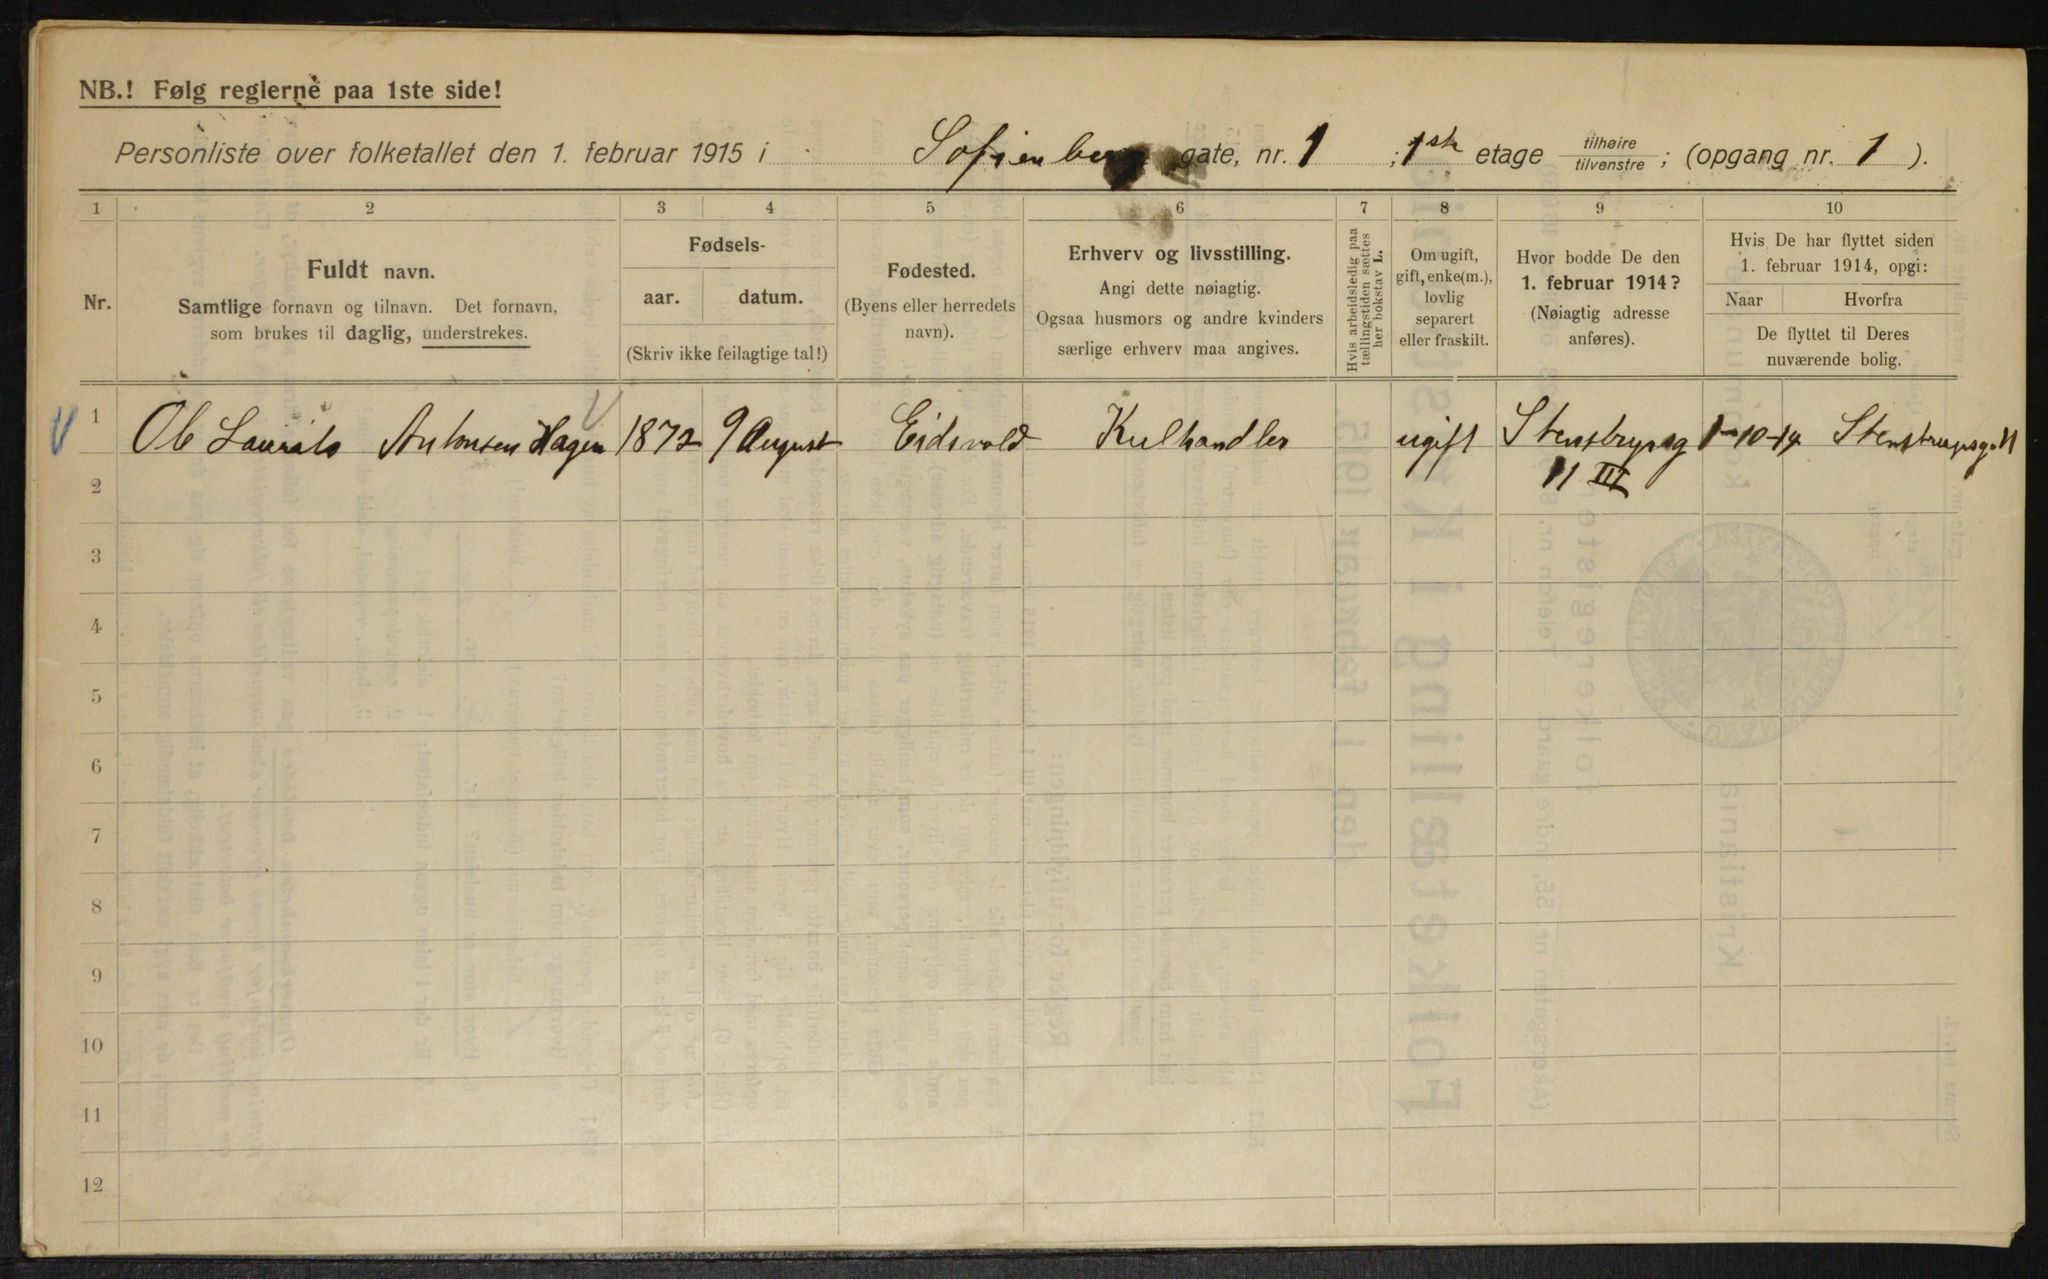 NB.! Følg reglerne paa 1ste side!
Personliste over folketallet den 1. februar 1915 i Sofienberg gate, nr. 1 ; 1ste etage tilhøire / tilvenstre ; (opgang nr. 1 ).
1 2 3 4 5 6 7 8 9 10
Nr.
Fuldt navn.
Samtlige fornavn og tilnavn. Det fornavn,
som brukes til daglig, understrekes.
Fødsels-
aar. datum.
(Skriv ikke feilagtige tal!)
Fødested.
(Byens eller herredets
navn).
Erhverv og livsstilling.
Angi dette nøiagtig.
Ogsaa husmors og andre kvinders
særlige erhverv maa angives.
Hvis arbeidsledig paa
tællingstiden sættes
her bokstav L.
Om ugift,
gift, enke(m.),
lovlig
separert
eller fraskilt.
Hvor bodde De den
1. februar 1914?
(Nøiagtig adresse
anføres).
Hvis De har flyttet siden
1. februar 1914, opgi:
Naar Hvorfra
De flyttet til Deres
nuværende bolig.
1 Ole Laurits Antonsen Hagen 1872 9 August Eidsvold Kulhandler ugift 1-10-14
2 11 III
3
4
5
6
7
8
9
10
11
12